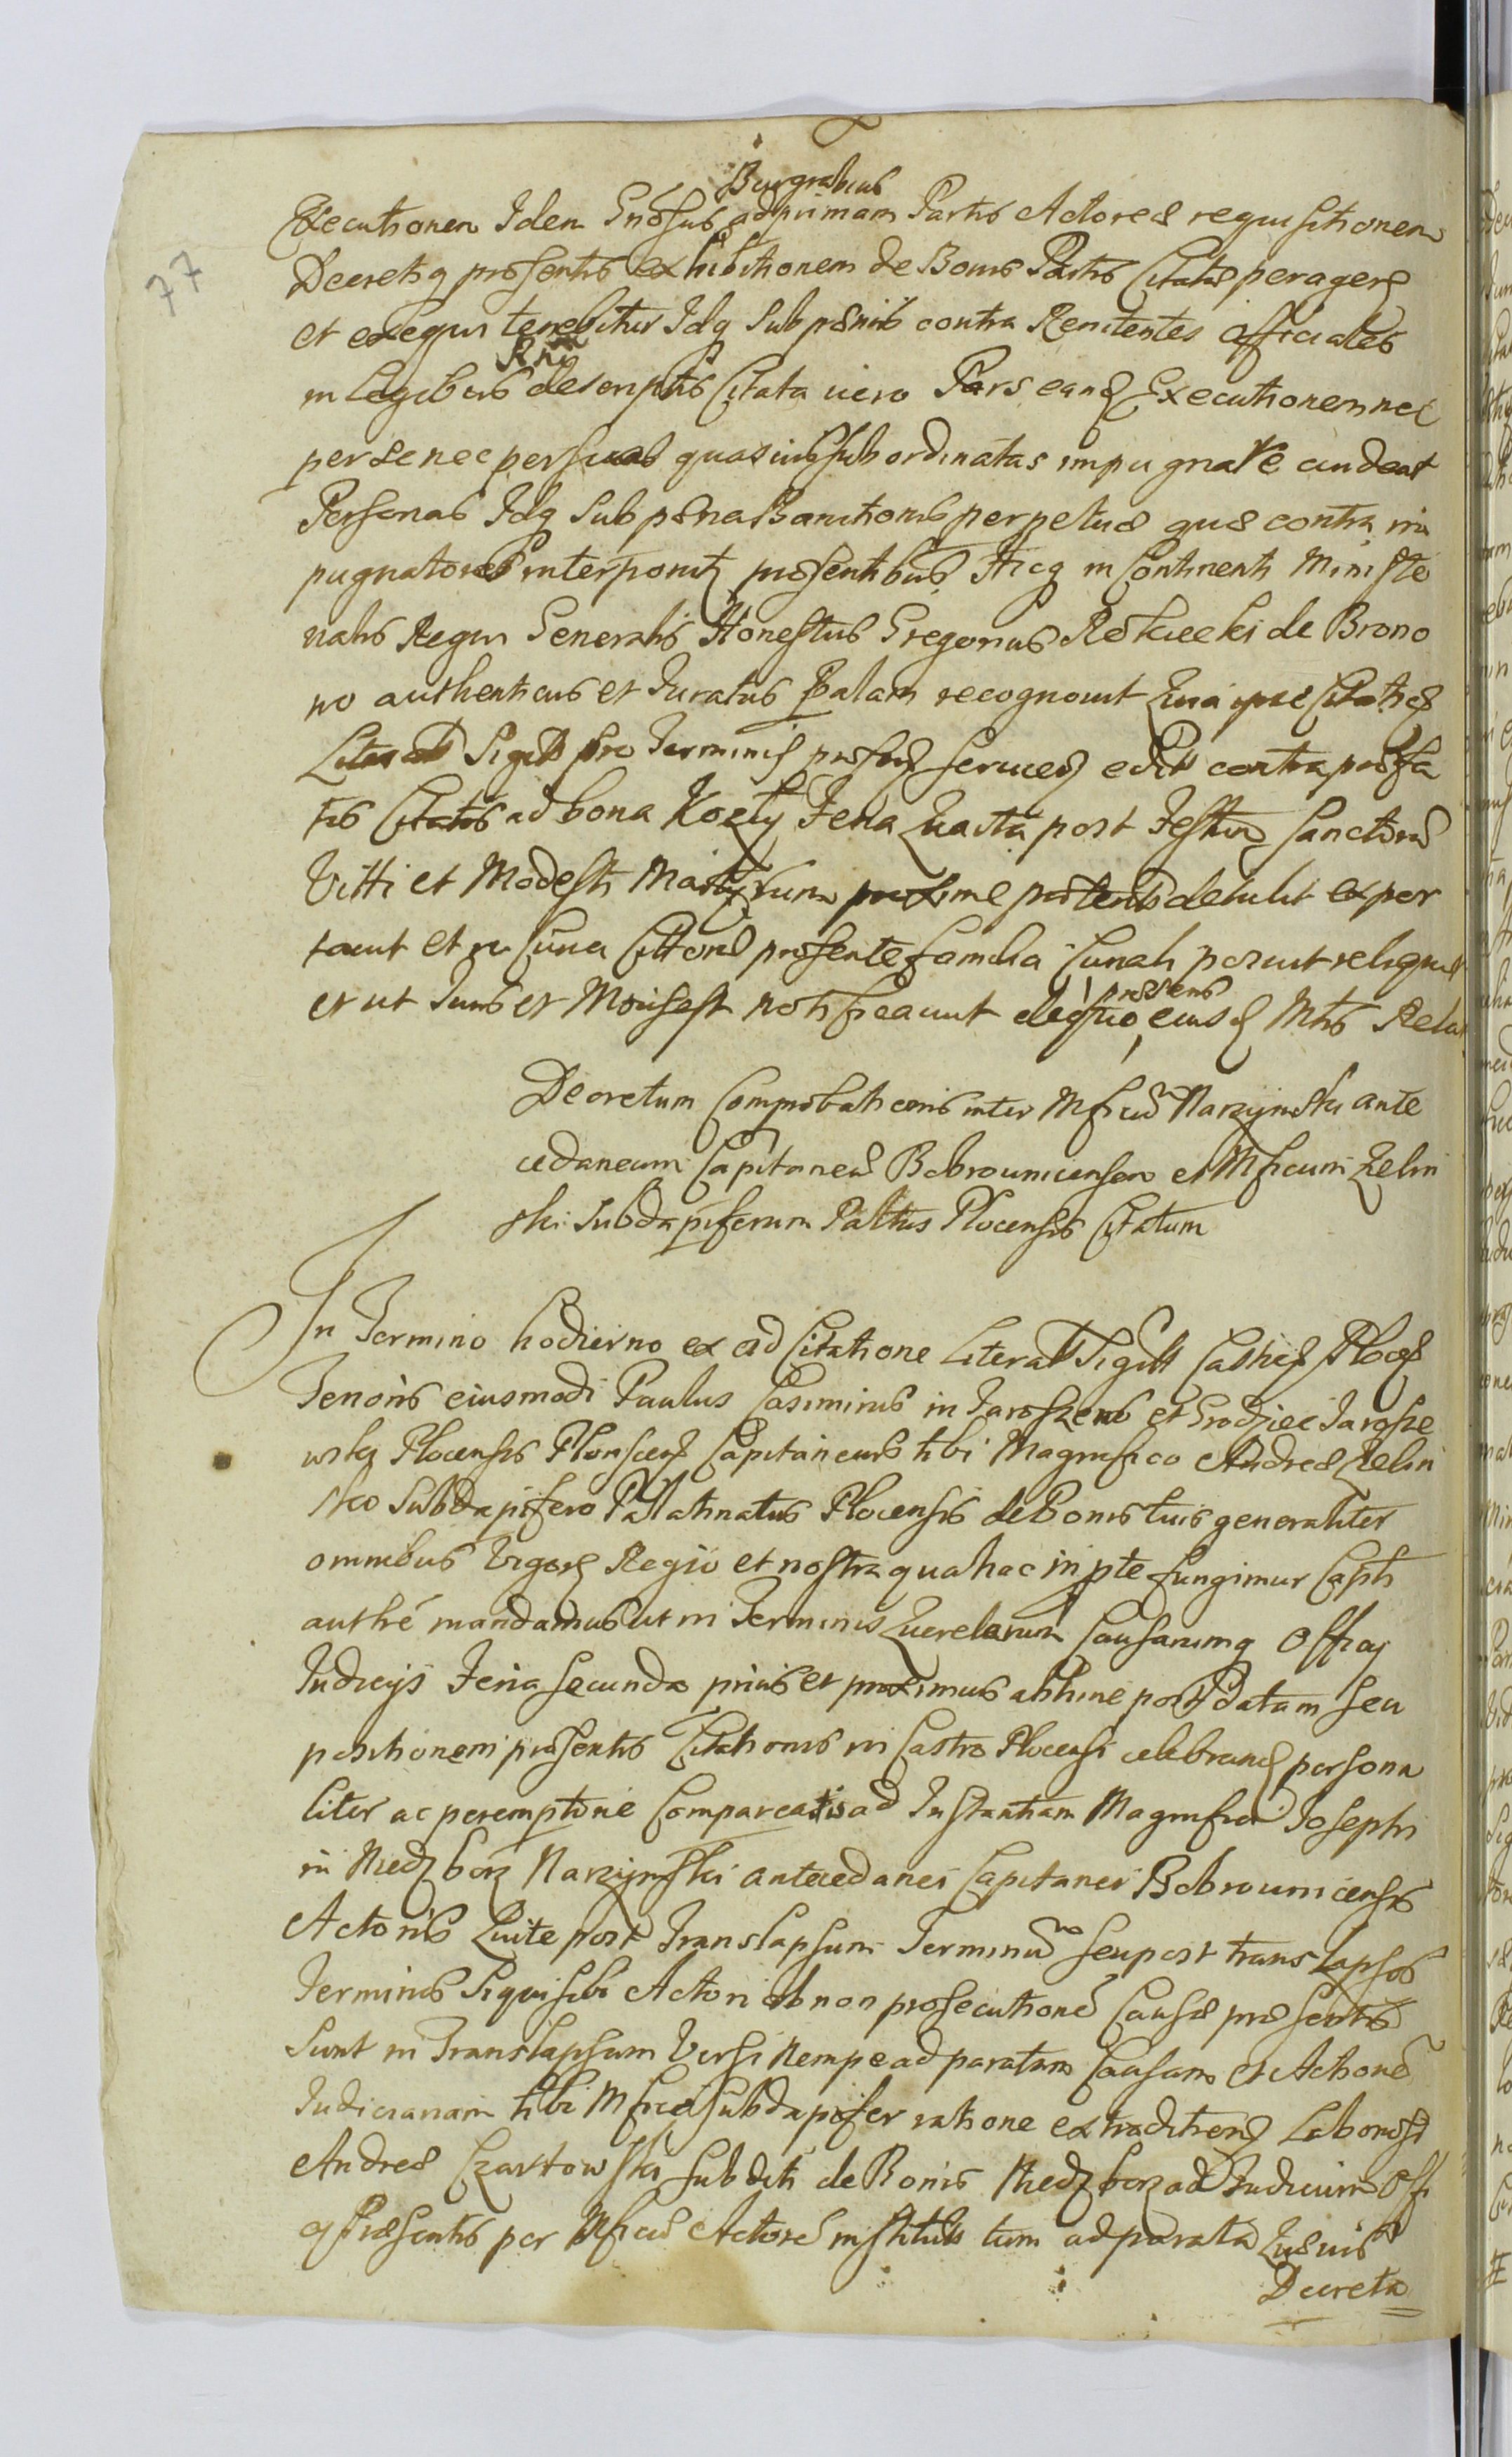 77
Burgrabius
Executionem Idem Gnosus ad primam Partis Actoreæ requisitionem
Decretiq præsentis exhibitionem de Bonis Partis Citatæ peragere
et exequi tenebitur Idq sub pænis contra Renitentes officiales
Rni
in Legibus descriptis Citata vero Pars eand Executionem nec
per se nec per suas quasvis subordinatas impugnare audeat
Personas Idq sub pæna Banitionis perpetuæ quæ contra im
pugnatores interponitz præsentibus Hicq in Continenti Ministe
rialis Regni Generalis Honestus Gregorius Rostkecki de Brono
wo authenticus et Iuratus palam recognovit Quia ipse Citationes
Literas Sigill pro Terminis præsend servien edit contra præfa
tis Citatis ad bona Kozly Feria Quarta post Festum Sanctorum
Vitti et Modesti Martyrum proxime præterito detulit expor
tavit et in Curia Cittorea præsente familia Curiali posuit reliquit
et ut Iuris et Moris est notificavit de quo præsens eiusd Mtris Relat
Decretum Comprobationis inter Mficum Narzymski ante
cedaneum Capitaneum Bobrownicensem et Mficum Zelin
ski Subdapiferum Palttus Plocensis Citatum
In Termino hodierno ex ad Citatione Literali Sigill Castrien Plocen
Tenoris eiusmodi Paulus Casimirus in Jaroszewo et Grodziec Jarosze
wski Plocensis Plonscen Capitaneus tibi Magnifico Andreæ Zelin
sko Subdapifero Palatinatus Plocensis de Bonis tuis generaliter
omnibus Vigore Regio et nostra qua hac in pte fungimur Capti
authe mandamus ut in Terminis Querelarum Causarumq Officy
Iudicijs Feria secunda prius et proximus abhinc post datam seu
positionem præsentis Citationis in Castro Plocensi celebrand persona
liter ac peremptorie Compareatis ad Instantiam Magnifici Josephi
in Niedzborz Narzymski antecedanei Capitanei Bobrownicensis
Actoris Qui te post Translapsum Terminum seu post translapsos
Terminos Siqui sibi Actori ob non prosecutione Causæ præsentis
sunt in Translapsum Versi nempe ad paratam Causam et Actione
Iudiciariam tibi Mfice Subdapifer ratione extraditionis Laboriosi
Andreæ Czartowski subditi de Bonis Niedzborz ad Iudicium Offi
cy Præsentis per Mficum Actore institutis tum ad parata quævis
Decreta